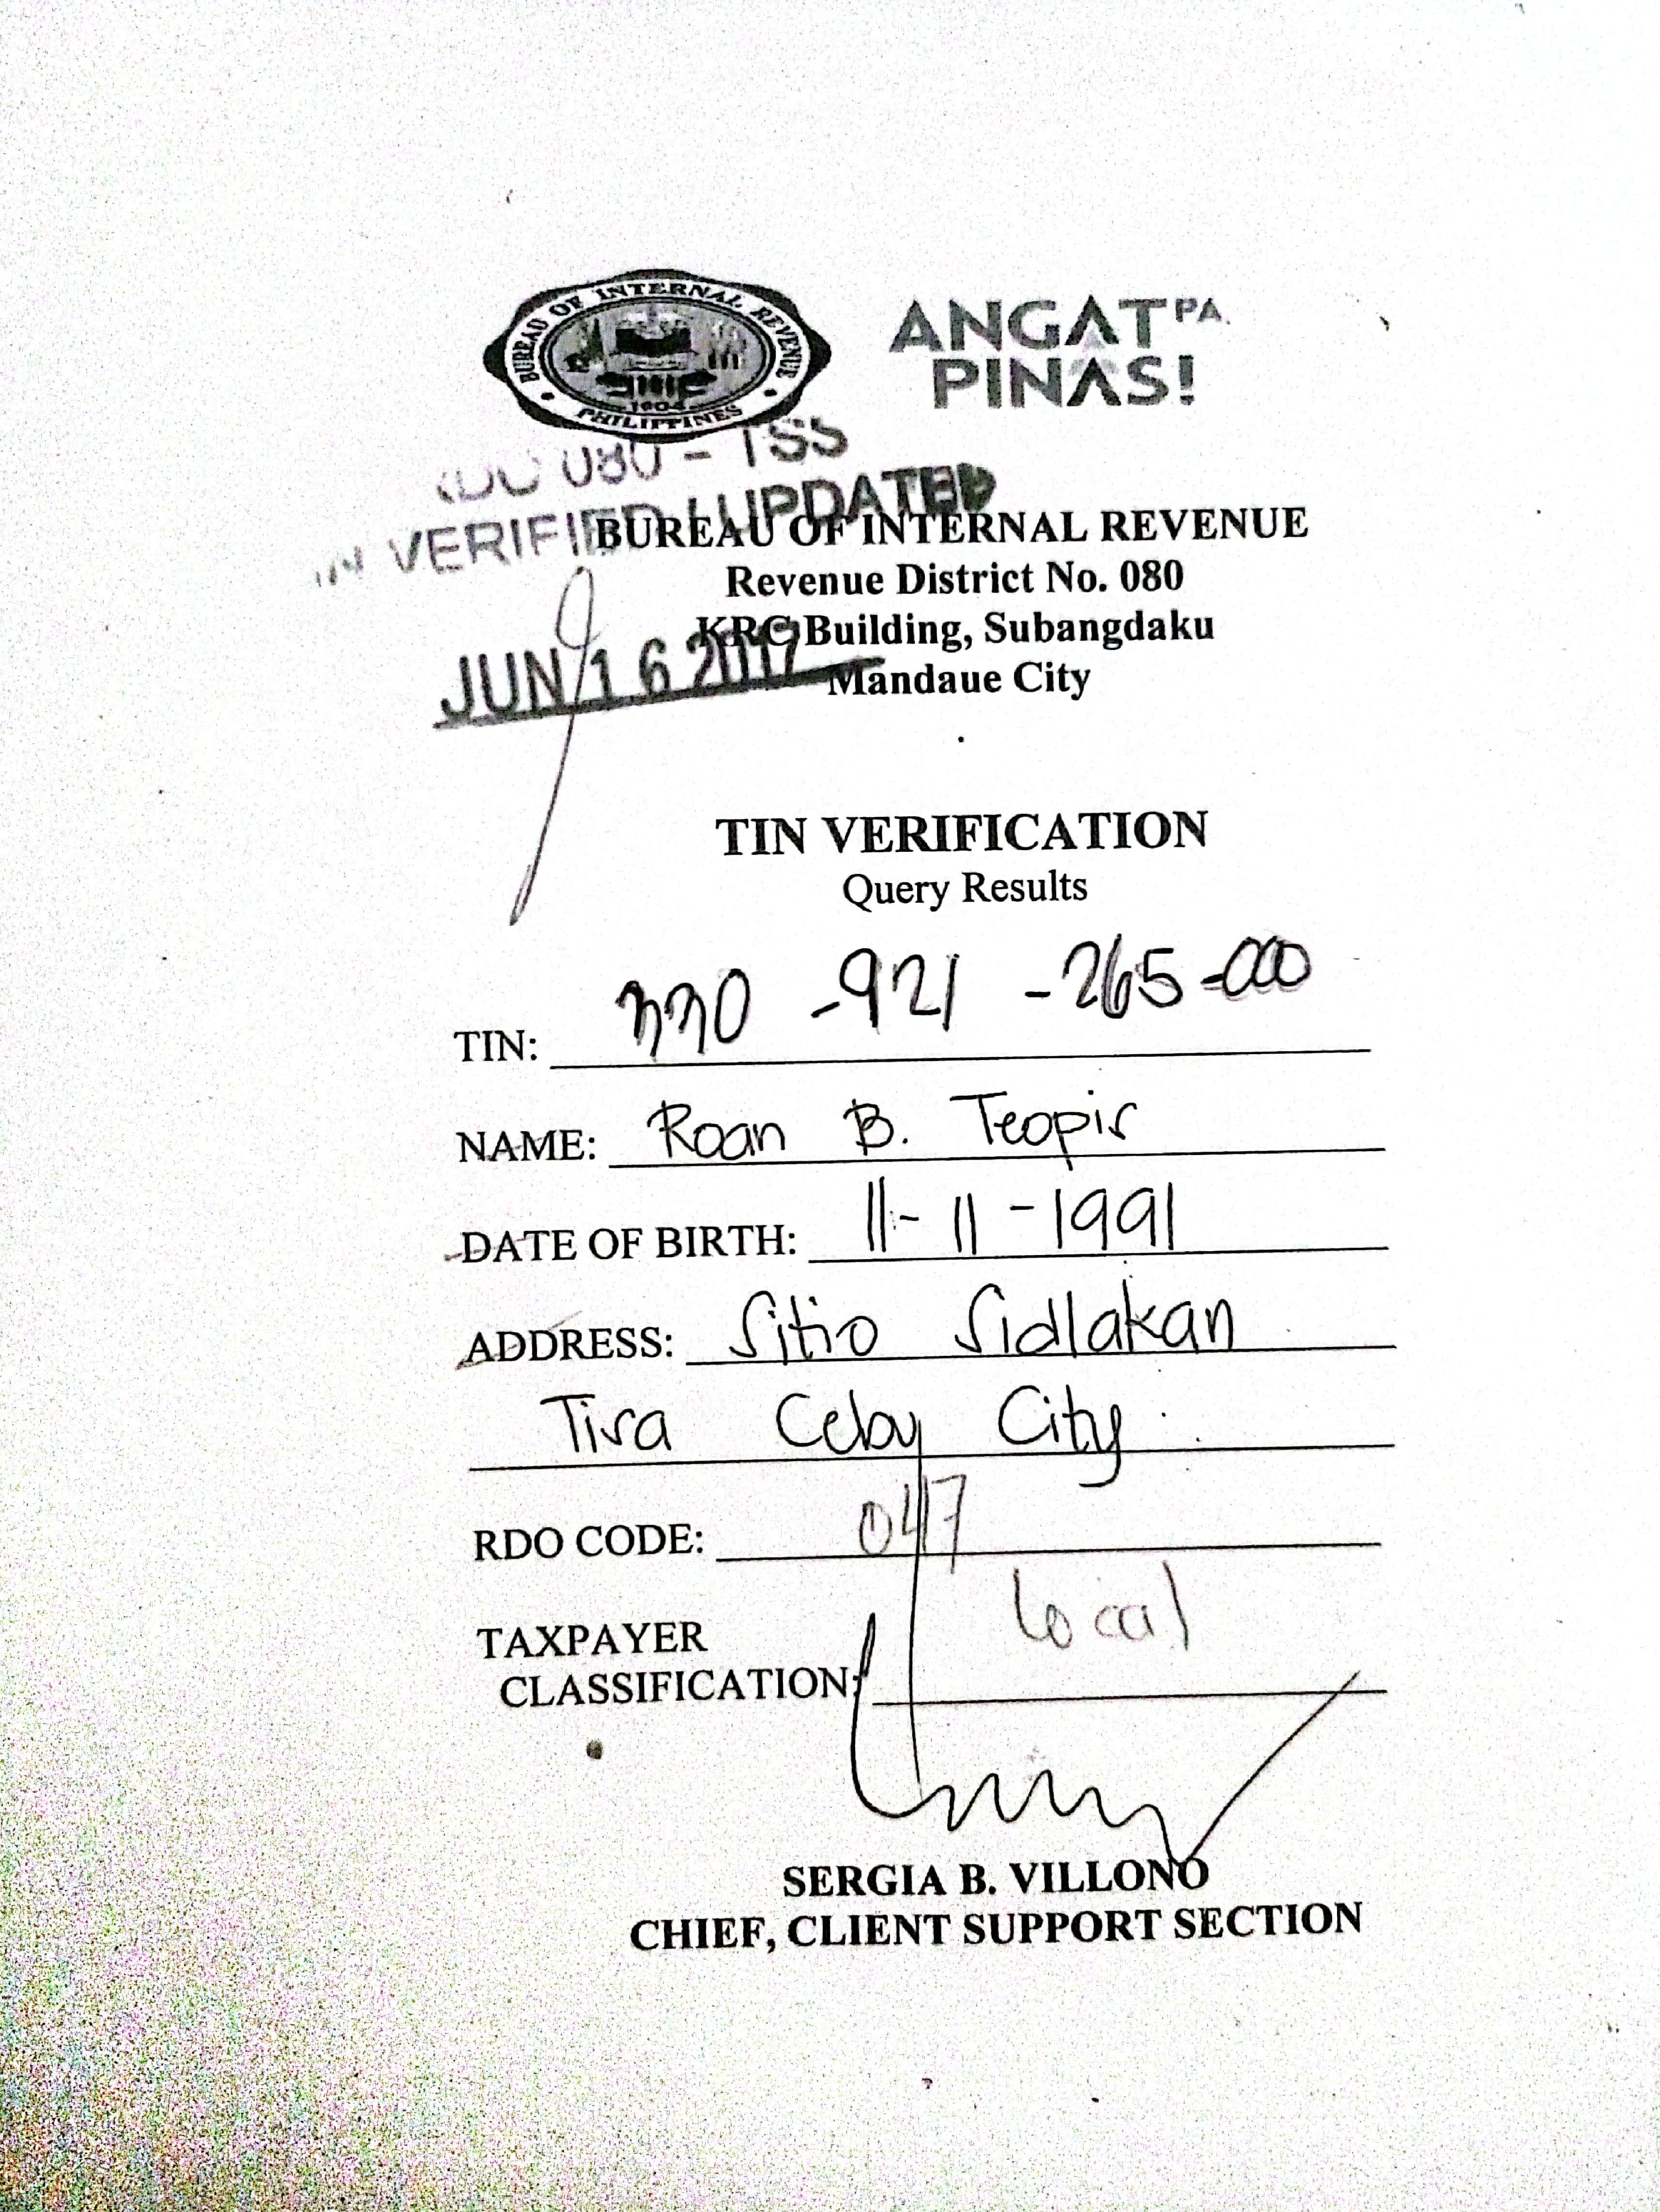 BUREAU OF INTERNAL REVENUE
1904
PHILIPPINES
ANGAT PA
PINAS!
080 - TSS
VERIFIED / UPDATED
BUREAU OF INTERNAL REVENUE
Revenue District No. 080
KRC Building, Subangdaku
JUN 16 2017
Mandaue City
TIN VERIFICATION
Query Results
TIN: 330 -921 -265-000
NAME: Roan B. Teopis
DATE OF BIRTH: 11-11-1991
ADDRESS: Sitio Sidlakan
Tisa Cebu City
RDO CODE: 047
TAXPAYER local
CLASSIFICATION:
SERGIA B. VILLONO
CHIEF, CLIENT SUPPORT SECTION